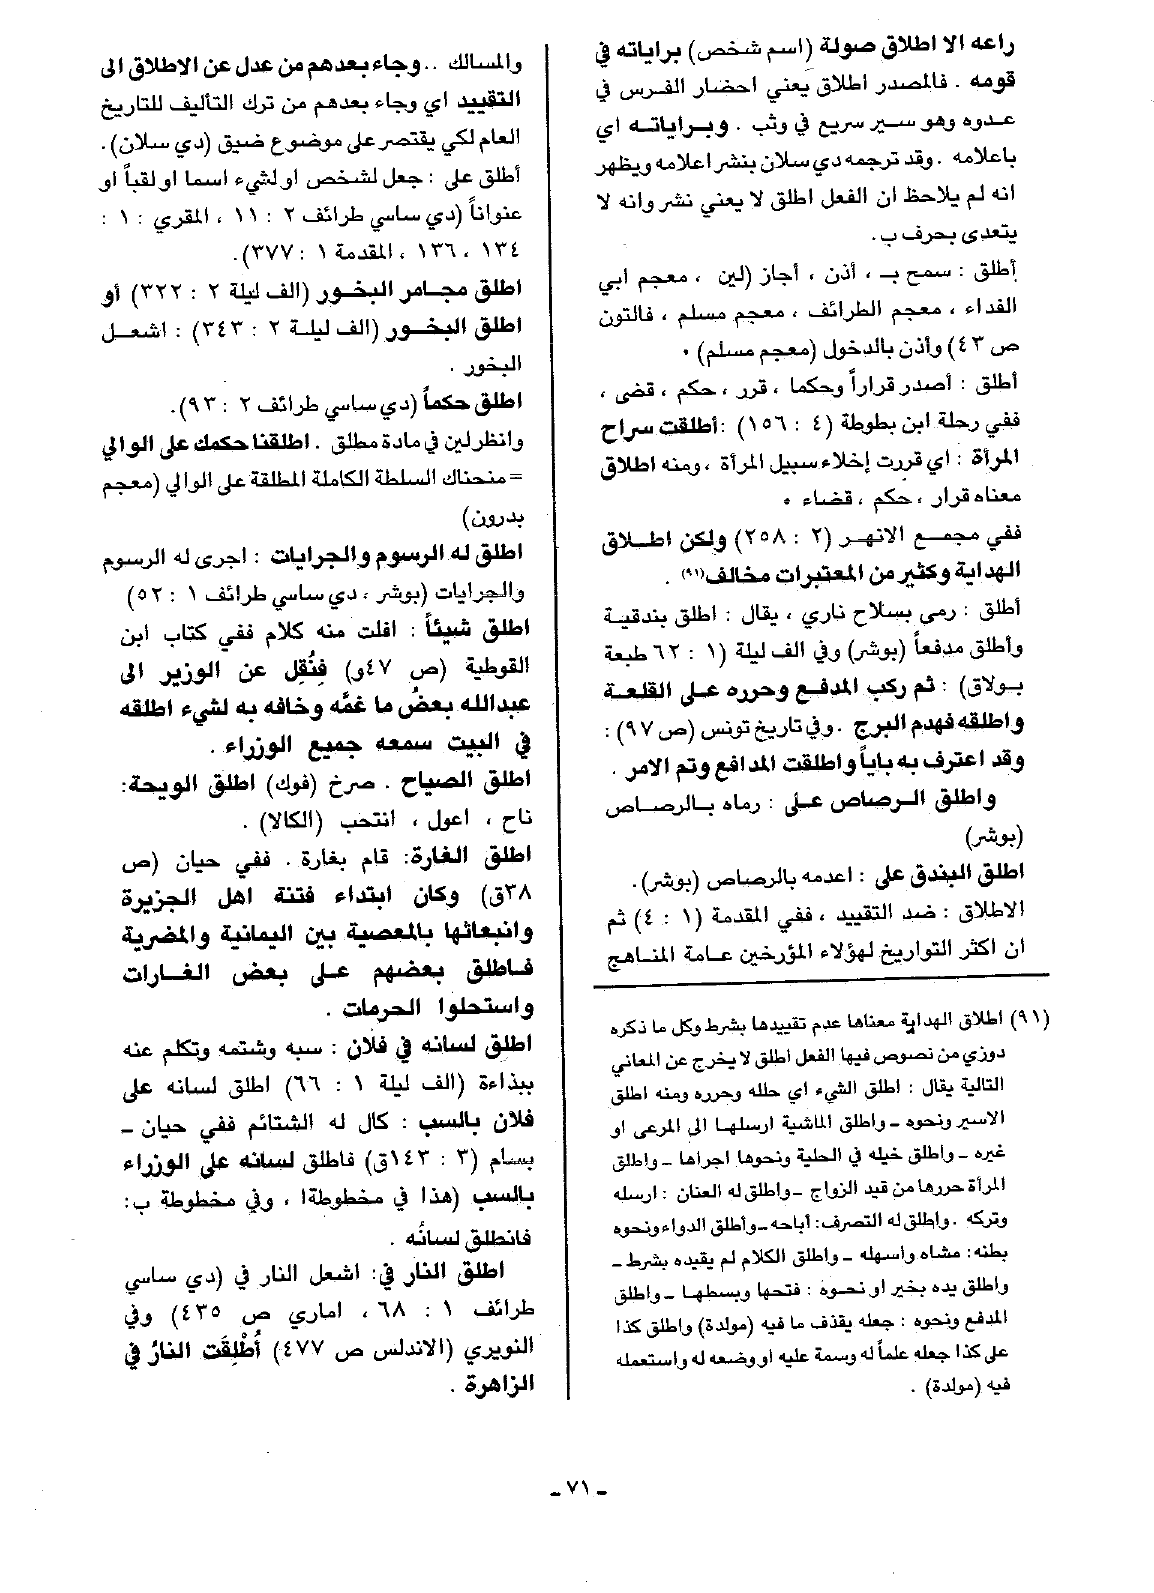 راعه الا اطلاق صولة (اسم شخص) براياته في
قومه . فالمصدر اطلاق يعني احضار الفرس في
عدوه وهو سير سريع في وثب . وبراياته اي
باعلامه . وقد ترجمه دي سلان بنشر اعلامه ويظهر
انه لم يلاحظ ان الفعل اطلق لا يعني نشر وانه لا
يتعدى بحرف ب.
أطلق : سمح بـ ، أذن ، أجاز (لين ، معجم أبي
الفداء ، معجم الطرائف ، معجم مسلم ، فالتون
ص ٤٣) وأذن بالدخول (معجم مسلم) .
أطلق : أصدر قراراً وحكما ، قرر ، حكم ، قضى ،
ففي رحلة ابن بطوطة (٤ : ١٥٦) :أطلقت سراح
المرأة : اي قررت إخلاء سبيل المرأة ، ومنه اطلاق
معناه قرار ، حكم ، قضاء .
ففي مجمع الانهر (٢ : ٢٥٨) ولكن اطلاق
الهداية وكثير من المعتبرات مخالف(٩١) .
أطلق : رمى بسلاح ناري ، يقال : اطلق بندقية
وأطلق مدفعاً (بوشر) وفي الف ليلة (١ : ٦٢ طبعة
بولاق) : ثم ركب المدفع وحرره على القلعة
واطلقه فهدم البرج . وفي تاريخ تونس (ص ٩٧) :
وقد اعترف به باياً واطلقت المدافع وتم الامر .
واطلق الرصاص على : رماه بالرصاص
(بوشر)
اطلق البندق على : اعدمه بالرصاص (بوشر).
الاطلاق : ضد التقييد ، ففي المقدمة (١ : ٤) ثم
ان اكثر التواريخ لهؤلاء المؤرخين عامة المناهج
(٩١) اطلاق الهداية معناها عدم تقييدها بشرط وكل ما ذكره
دوزي من نصوص فيها الفعل اطلق لا يخرج عن المعاني
التالية يقال : اطلق الشيء اي حلله وحرره ومنه اطلق
الاسير ونحوه ـ واطلق الماشية ارسلها الى المرعى او
غيره ـ واطلق خيله في الحلبة ونحوها اجراها ـ واطلق
المرأة حررها من قيد الزواج ـ واطلق له العنان : ارسله
وتركه . واطلق له التصرف: أباحه ـ وأطلق الدواء ونحوه
بطنه: مشاه واسهله ـ واطلق الكلام لم يقيده بشرط ـ
واطلق يده بخير او نحوه : فتحها وبسطها ـ واطلق
المدفع ونحوه : جعله يقذف ما فيه (مولدة) واطلق كذا
على كذا جعله علماً له وسمة عليه او وضعه له واستعمله
فيه (مولدة) .
والمسالك .. وجاء بعدهم من عدل عن الاطلاق الى
التقييد اي وجاء بعدهم من ترك التأليف للتاريخ
العام لكي يقتصر على موضوع ضيق (دي سلان).
أطلق على : جعل لشخص او لشيء اسما او لقباً او
عنواناً (دي ساسي طرائف ٢ : ١١ ، المقري : ١ :
١٣٤ ، ١٣٦ ، المقدمة ١ : ٣٧٧).
اطلق مجامر البخور (الف ليلة ٢ : ٣٢٢) أو
اطلق البخور (الف ليلة ٢ : ٣٤٣) : اشعل
البخور .
اطلق حكماً (دي ساسي طرائف ٢ : ٩٣).
وانظر لين في مادة مطلق . اطلقنا حكمك على الوالي
= منحناك السلطة الكاملة المطلقة على الوالي (معجم
بدرون)
اطلق له الرسوم والجرايات : اجرى له الرسوم
والجرايات (بوشر ، دي ساسي طرائف ١ : ٥٢)
اطلق شيئاً : افلت منه كلام ففي كتاب ابن
القوطية (ص ٤٧و) فنُقِل عن الوزير الى
عبدالله بعضُ ما غمَّه وخافه به لشيء اطلقه
في البيت سمعه جميع الوزراء .
اطلق الصياح . صرخ (فوك) اطلق الويحة:
ناح ، اعول ، انتحب (الكالا) .
اطلق الغارة: قام بغارة . ففي حيان (ص
٣٨ق) وكان ابتداء فتنة اهل الجزيرة
وانبعاثها بالمعصية بين اليمانية والمضرية
فاطلق بعضهم على بعض الغارات
واستحلوا الحرمات .
اطلق لسانه في فلان : سبه وشتمه وتكلم عنه
ببذاءة (الف ليلة ١ : ٦٦) اطلق لسانه على
فلان بالسب : كال له الشتائم ففي حيان ـ
بسام (٣ : ١٤٣ق) فاطلق لسانه على الوزراء
بالسب (هذا في مخطوطةا ، وفي مخطوطة ب:
فانطلق لسانُه .
اطلق النار في: اشعل النار في (دي ساسي
طرائف ١ : ٦٨ ، اماري ص ٤٣٥) وفي
النويري (الاندلس ص ٤٧٧) أُطْلِقَت النارُ في
الزاهرة .
ـ ٧١ ـ